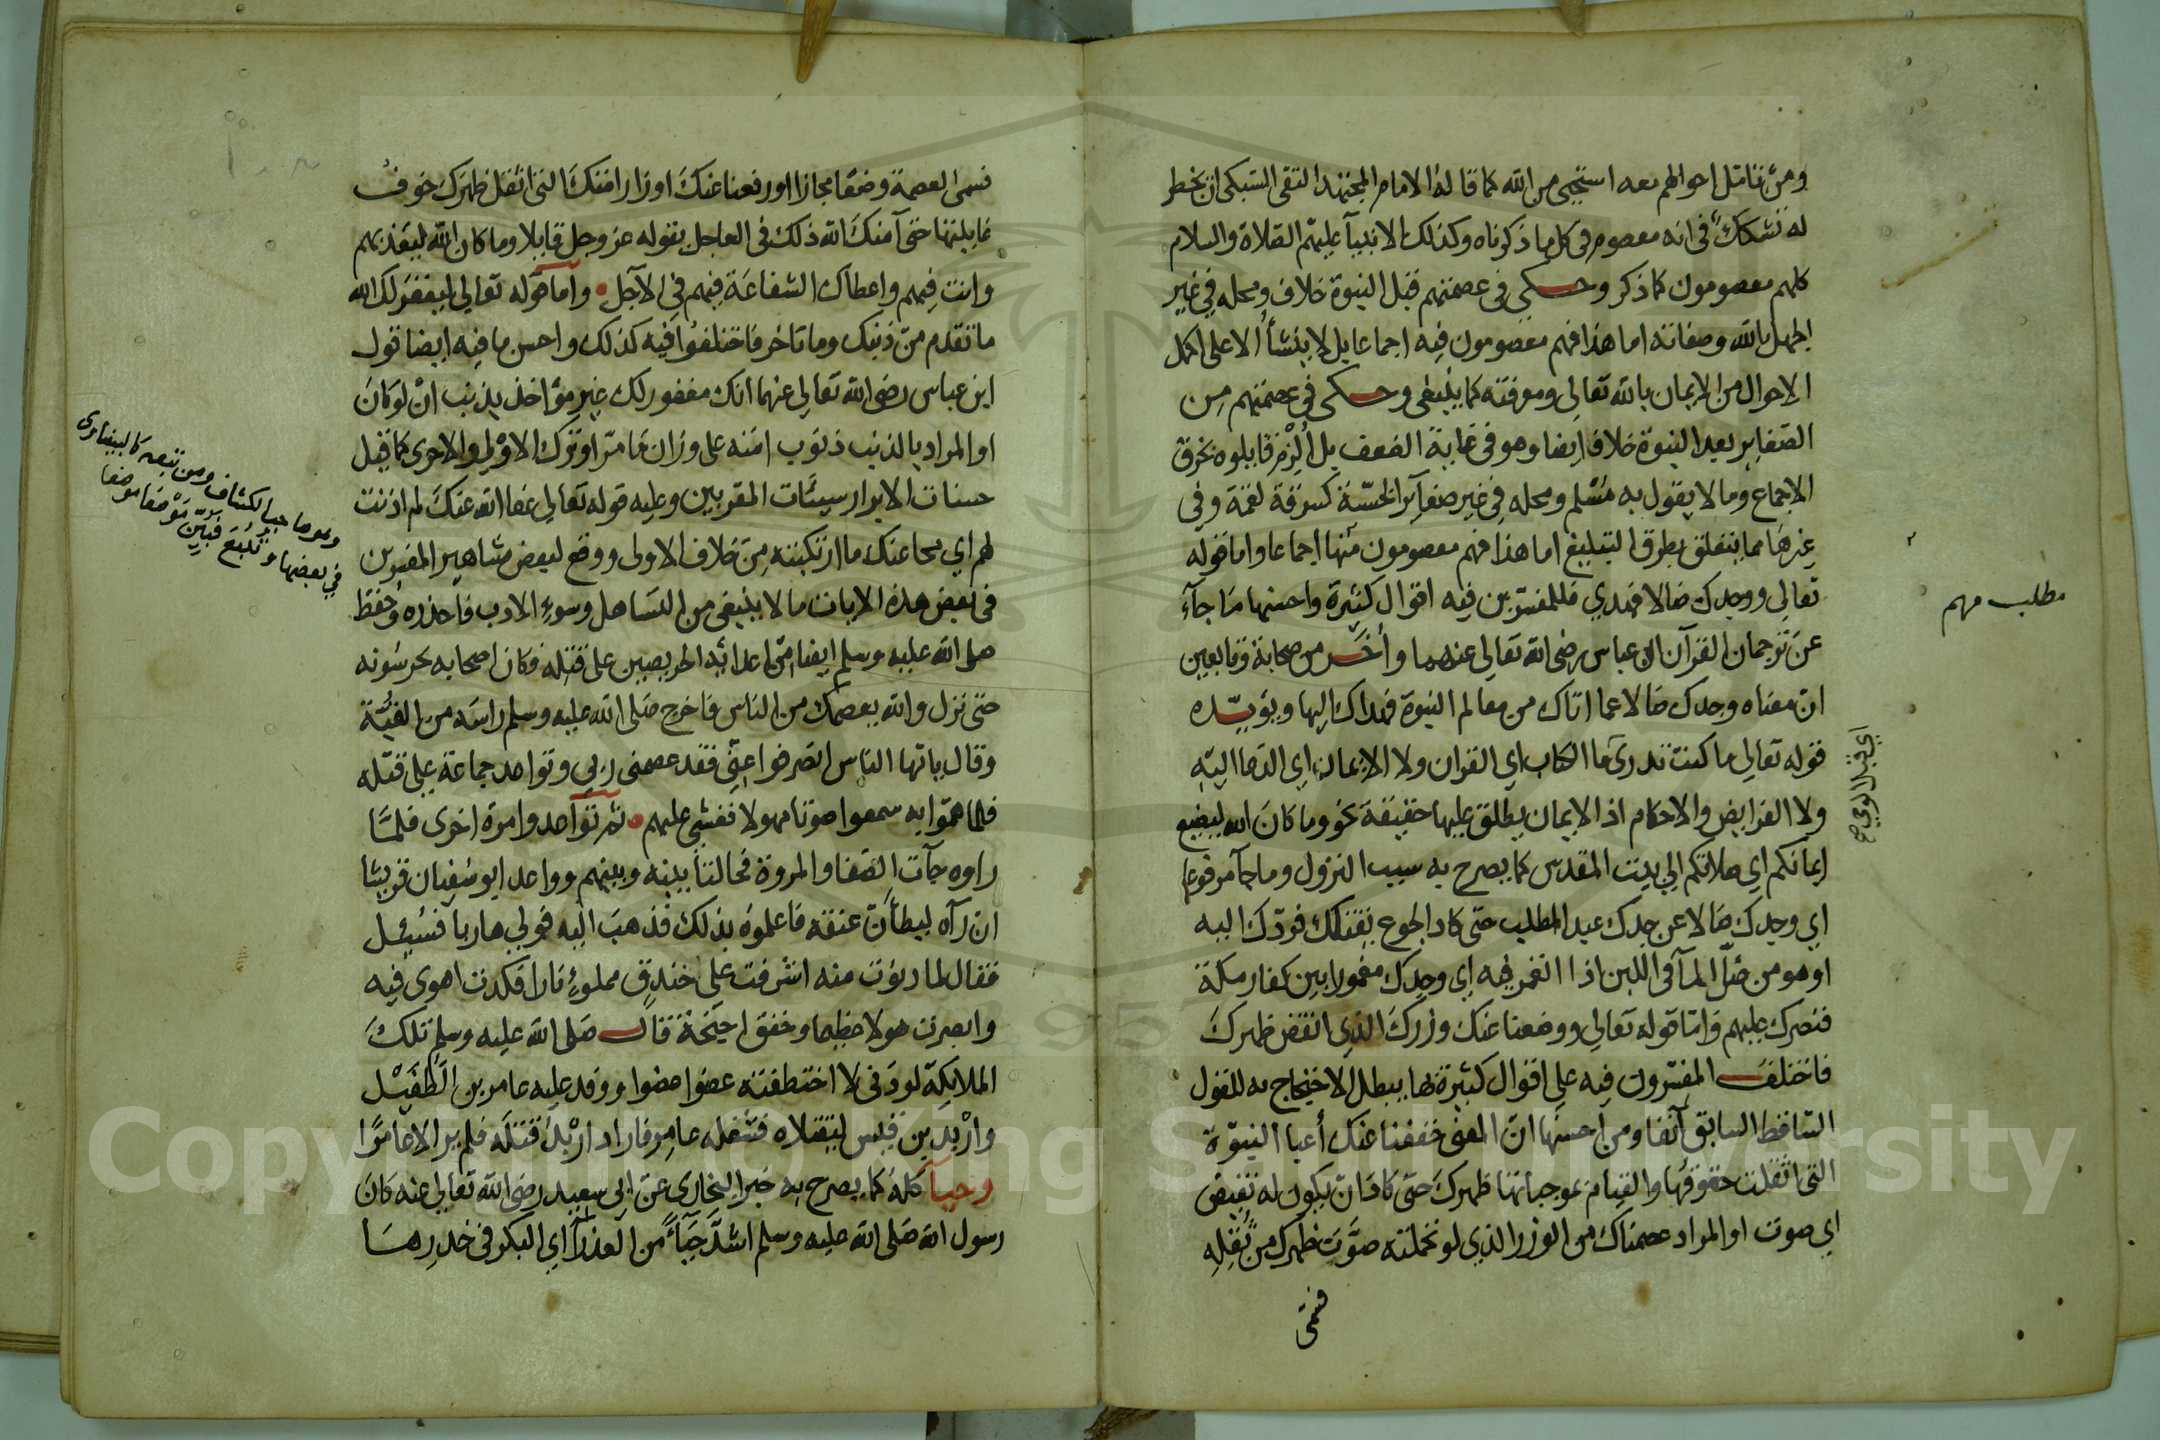 ومن تأمل احوالهم معه استحيى من الله كما قاله الامام المجتهد التقى السبكى ان يخطر
له تشكك في انه معصوم في كل ما ذكرناه وكذلك الانبيآ عليهم الصلاة والسلام
كلهم معصومون كما ذكر وحكى في عصمتهم قبل النبوة خلاف ومحله في غير
الجهل بالله وصفاته اما هذا فهم معصومون فيه اجماعا بل لا ينشأ الا على اكمل
الاحوال من الايمان بالله تعالى ومعرفته كما ينبغى وحكى في عصمتهم من
الصغاير بعد النبوة خلاف ايضا وهو في غاية الضعف بل الزم قايلوه بخرق
الاجماع وما لا يقول به مسلم ومحله في غير صغآير الخسة كسرقة لقمة وفي
غيرها مما يتعلق بطرق التبليغ اما هذا فهم معصومون منها اجماعا واما قوله
تعالى ووجدك ضالا فهدي فللمفسرين فيه اقوال كثيرة واحسنها ما جآء
عن ترجمان القرآن ابن عباس رضى الله تعالى عنهما وأخر من صحابة وتابعين
ان معناه وجدك ضالا عما اتاك من معالم النبوة فهداك اليها ويؤيده
قوله تعالى ما كنت تدرى ما الكتاب اي القران ولا الايمان اي الدعا اليه
ولا الفرايض والاحكام اذ الايمان يطلق عليها حقيقة نحو وما كان الله ليضيع
ايمانكم اي صلاتكم الى بيت المقدس كما يصرح به سبب النزول وما جآ مرفوعا
اي وجدك ضالا عن جدك عبد المطلب حتى كاد الجوع يقتلك فردك اليه
او هو من ضل المآ في اللبن اذا انغمر فيه اي وجدك مغمورا بين كفار مكة
فنصرك عليهم واما قوله تعالى ووضعنا عنك وزرك الذي انقض ظهرك
فاختلف المفسرون فيه على اقوال كثيرة بها يبطل الاحتجاج به للقول
الساقط السابق آنفا ومن احسنها ان المعنى خففنا عنك أعبا النبوة
التى اثقلت حقوقها والقيام بموجباتها ظهرك حتى كاد ان يكون له نقيض
اي صوت او المراد عصمناك من الوزر الذي لو تحملته صوت ظهرك من ثقله
فسمى
مطلب مهم
اي قبل الوحي
فسمى العصمة وضعا مجازا او رفعنا عنك اوزار امتك التى اثقل ظهرك خوف
غايلتها حتى آمنك الله ذلك في العاجل بقوله عز وجل قايلا وما كان الله ليعذبهم
وانت فيهم واعطاك الشفاعة فيهم في الآجل واما قوله تعالى ليغفر لك الله
ما تقدم من ذنبك وما تاخر فاختلفوا فيه كذلك واحسن ما فيه ايضا قول
ابن عباس رضى الله تعالى عنهما انك مغفور لك غير مؤاخذ بذنب ان لو كان
او المراد بالذنب ذنوب امته على وزان ما مر او ترك الاولى والاحرى كما قيل
حسنات الابرار سيئات المقربين وعليه قوله تعالى عفا الله عنك لم اذنت
لهم اي محا عنك ما ارتكبته من خلاف الاولى ووقع لبعض مشاهير المفسرين
في بعض هذه الايات ما لا ينبغى من التساهل وسوء الادب فاحذره وحفظ
صلى الله عليه وسلم ايضا من اعدائه الحريصين على قتله فكان اصحابه يحرسونه
حتى نزل والله يعصمك من الناس فاخرج صلى الله عليه وسلم راسه من القبة
وقال يا ايها الناس انصرفوا عنى فقد عصمنى ربى وتواعد جماعة على قتله
فلما هموا به سمعوا صوتا مهولا فغشي عليهم ثم تواعدوا مرة اخرى فلما
راوه جآت الصفا والمروة فحالتا بينه وبينهم وواعد ابو سفيان قريشا
ان رآه ليطأن عنقه فاعلموه بذلك فذهب اليه فولى هاربا فسئل
فقال لما دنوت منه اشرفت على خندق مملوء نارا فكدت اهوى فيه
وابصرت هولا عظيما وخفق اجنحة فقال صلى الله عليه وسلم تلك
الملايكة لو دنى لاختطفته عضوا عضوا ووفد عليه عامر بن الطفيل
واربد بن قيس ليقتلاه فشغله عامر فاراد اربد قتله فلم ير الا عامرا
وحيآ كله كما يصرح به خبر البخارى عن ابى سعيد رضى الله تعالى عنه كان
رسول الله صلى الله عليه وسلم اشد حيآء من العذرآ اي البكر في خدرها
وهو صاحب الكشاف ومن تبعه كالبيضاوى
في بعضها
موضعا موضعا
Copyright © King Saud University